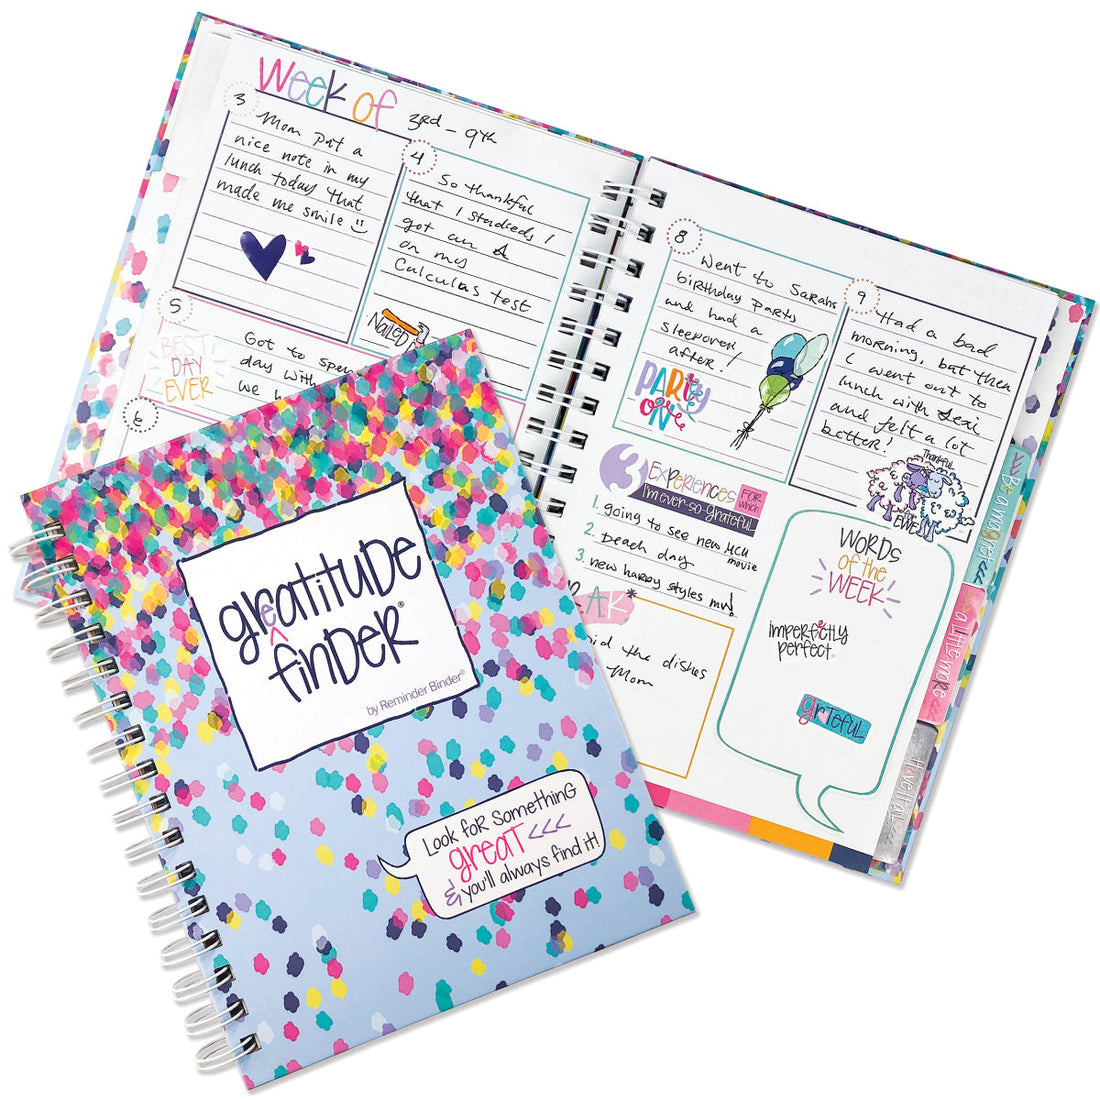 Week of
3rd - 9th
3
Mom put a
nice note in my
lunch today that
made me smile
4
So thankful
that I studied! I
got an A
on my
Calculus test
NaiLeD
5
BEST
DAY
EVER
Got to spen
day with
we
6
8
Went to Sarahs
birthday party
and had a
sleepover
after!
PARty
ON
9
Had a bad
morning, but then
I went out to
lunch with Lexi
and felt a lot
better!
Thankful
for
EWE
3 ExpeRiences FOR which
I'm ever-so-grateful
1. going to see new MCU
movie
2. beach day
3. new harry styles mv!
AK*
id the dishes
Mom
WORDS
of the
WEEK
imperfectly
perfect
grTefuL
a little more <<<
Have it all <<<
greatituDe
finDeR®
by Reminder Binder®
Look foR SometHinG
greaT <<<
& you'll always find it!